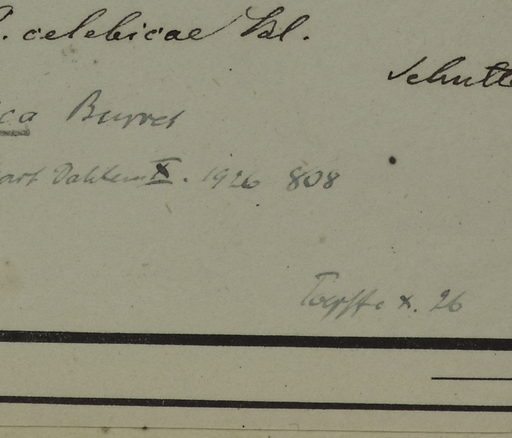 . celebicae Val.
Schutt
ca Burret
art Dahlem X. 1926 808
x. 26